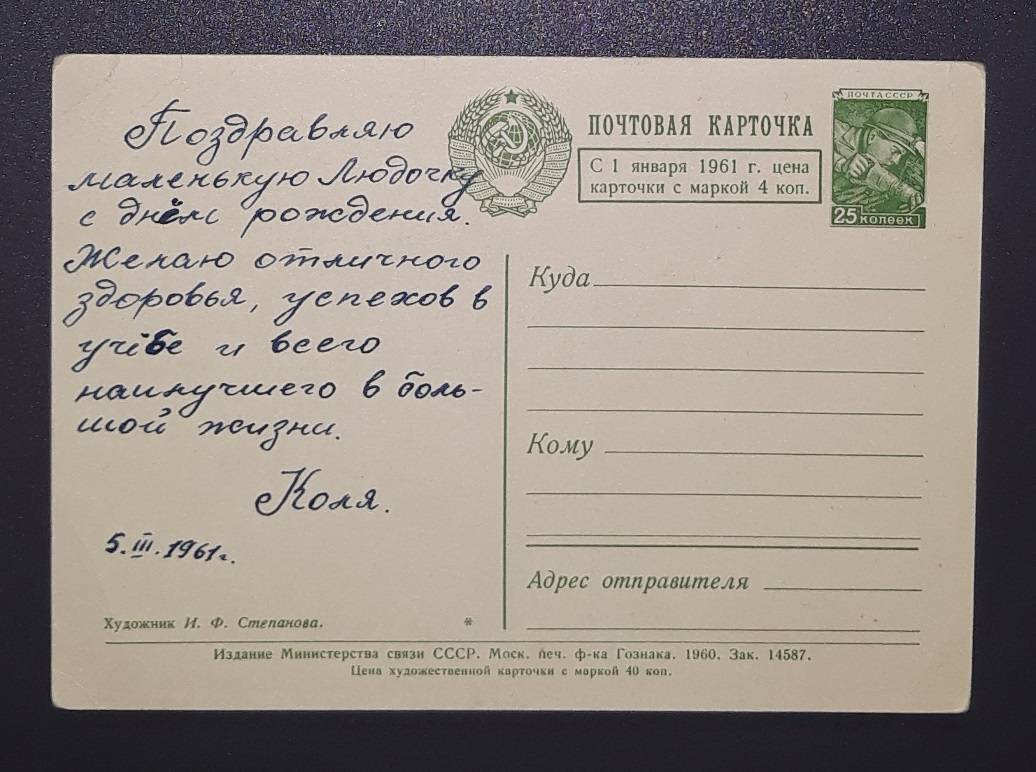 Поздравляю
маленькую Людочку
с днём рождения.
Желаю отличного
здоровья, успехов в
учёбе и всего
наилучшего в боль-
шой жизни.
Коля.
5.III.1961г.
Художник И. Ф. Степанова.
*
ПОЧТОВАЯ КАРТОЧКА
С 1 января 1961 г. цена
карточки с маркой 4 коп.
ПОЧТА СССР
25 копеек
Куда
Кому
Адрес отправителя
Издание Министерства связи СССР. Моск. печ. ф-ка Гознака. 1960. Зак. 14587.
Цена художественной карточки с маркой 40 коп.